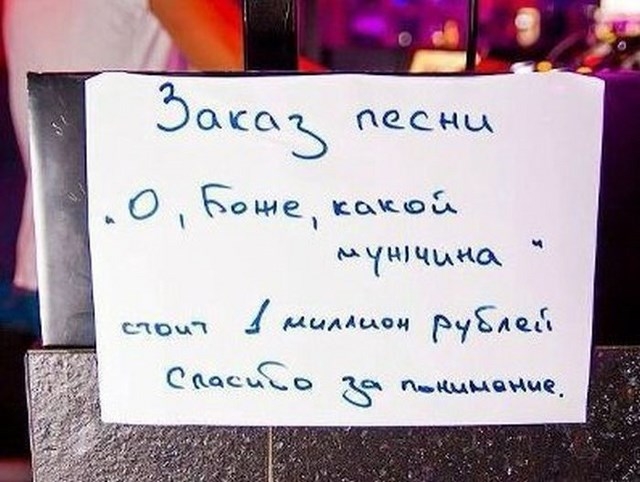 Заказ песни
"О, Боже, какой
мужчина"
стоит 1 миллион рублей
Спасибо за понимание.